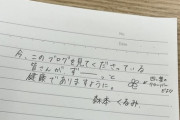 今、このブログを見てくださっている
皆さんが ずーーっと
健康でありますように。
森本 くるみ
四つ葉の
クローバー
だよ!